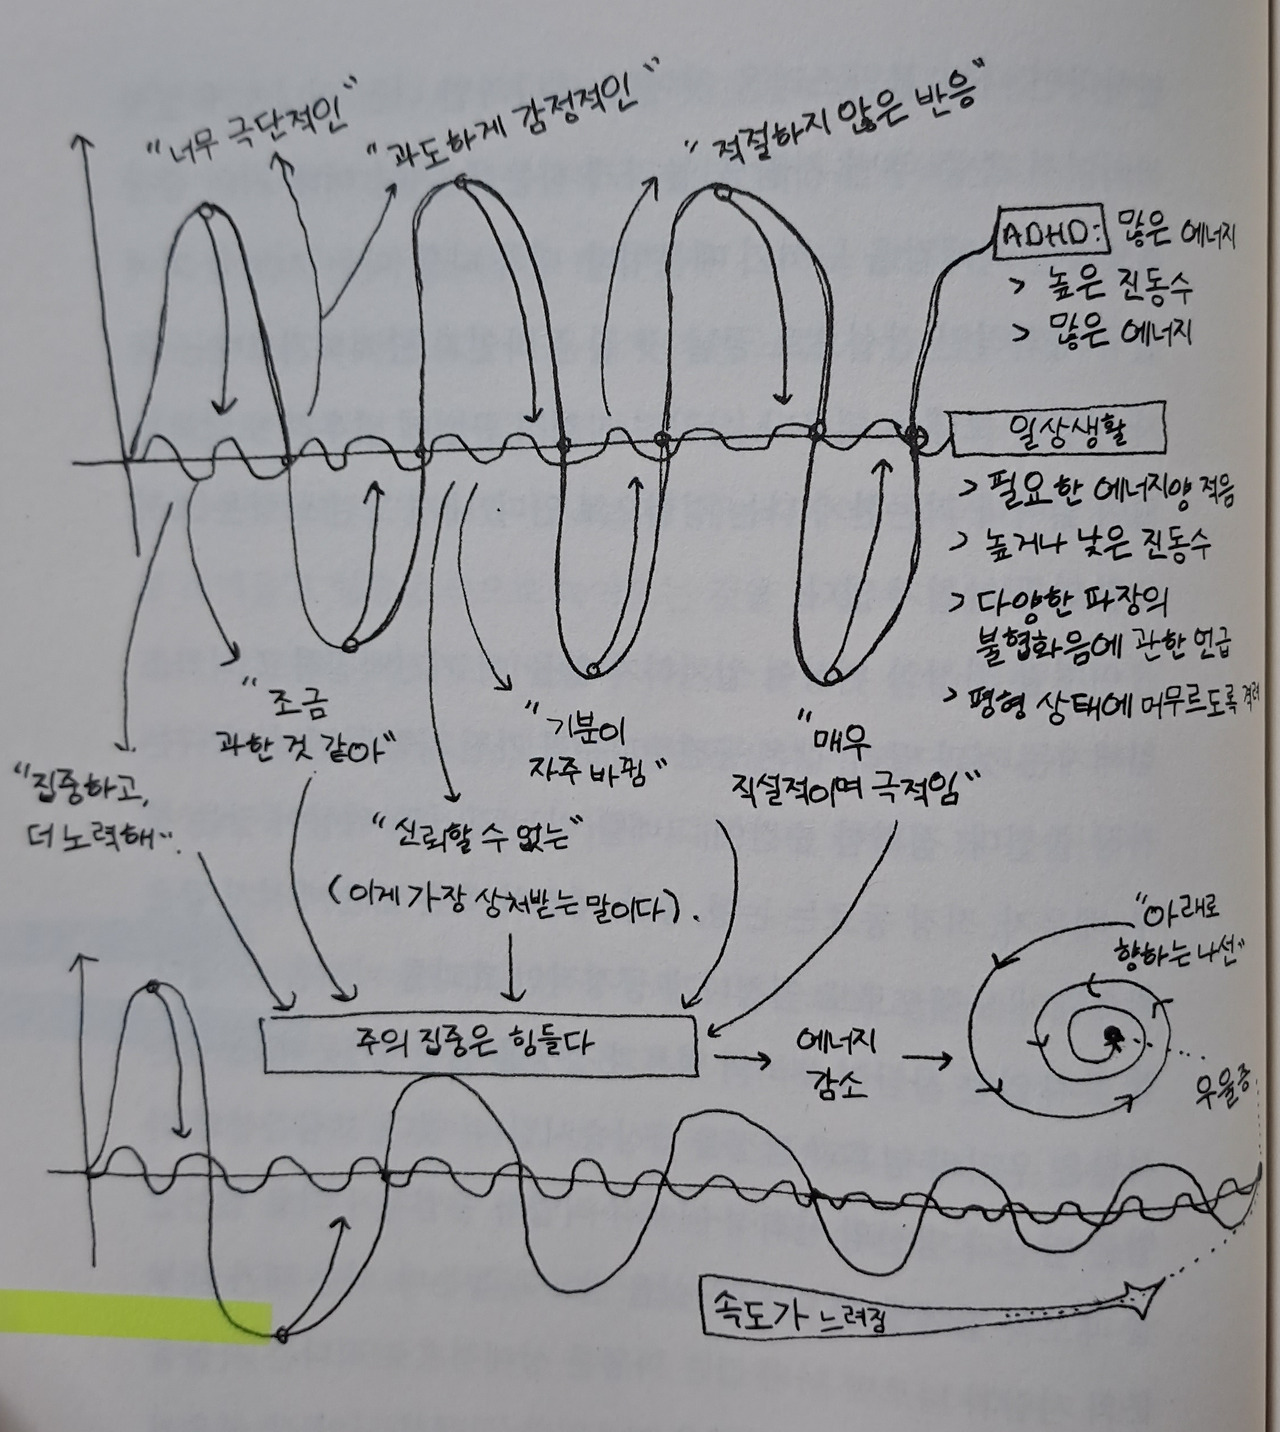 "너무 극단적인"
"과도하게 감정적인"
"적절하지 않은 반응"
ADHD: 많은 에너지
> 높은 진동수
> 많은 에너지
일상생활
> 필요한 에너지양 적음
> 높거나 낮은 진동수
> 다양한 파장의
불협화음에 관한 언급
> 평형 상태에 머무르도록 격려
"조금
과한 것 같아"
"기분이
자주 바뀜"
"매우
직설적이며 극적임"
"집중하고,
더 노력해".
"신뢰할 수 없는"
(이게 가장 상처받는 말이다).
"아래로
향하는 나선"
주의 집중은 힘들다
에너지
감소
우울증
속도가 느려짐